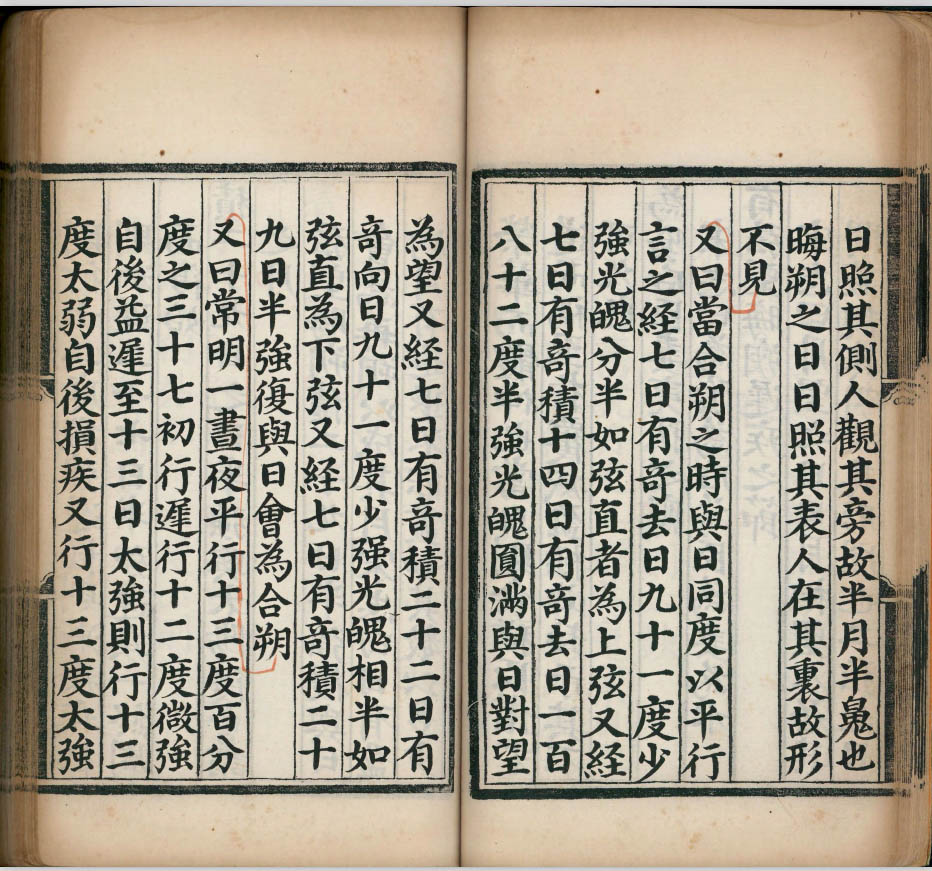 日照其側人觀其旁故半月半鬼也
晦朔之日日照其表人在其裏故形
不見
又曰當合朔之時與日同度以平行
言之經七日有竒去日九十一度少
強光魄分半如弦直者為上弦又經
七日有竒積十四日有竒去日一百
八十二度半強光魄圓滿與日對望
為望又經七日有竒積二十二日有
竒向日九十一度少强光魄相半如
弦直為下弦又經七日有竒積二十
九日半強復與日會為合朔
又曰常明一晝夜平行十三度百分
度之三十七初行遲行十二度微強
自後益遲至十三日太強則行十三
度太弱自後損疾又行十三度太強